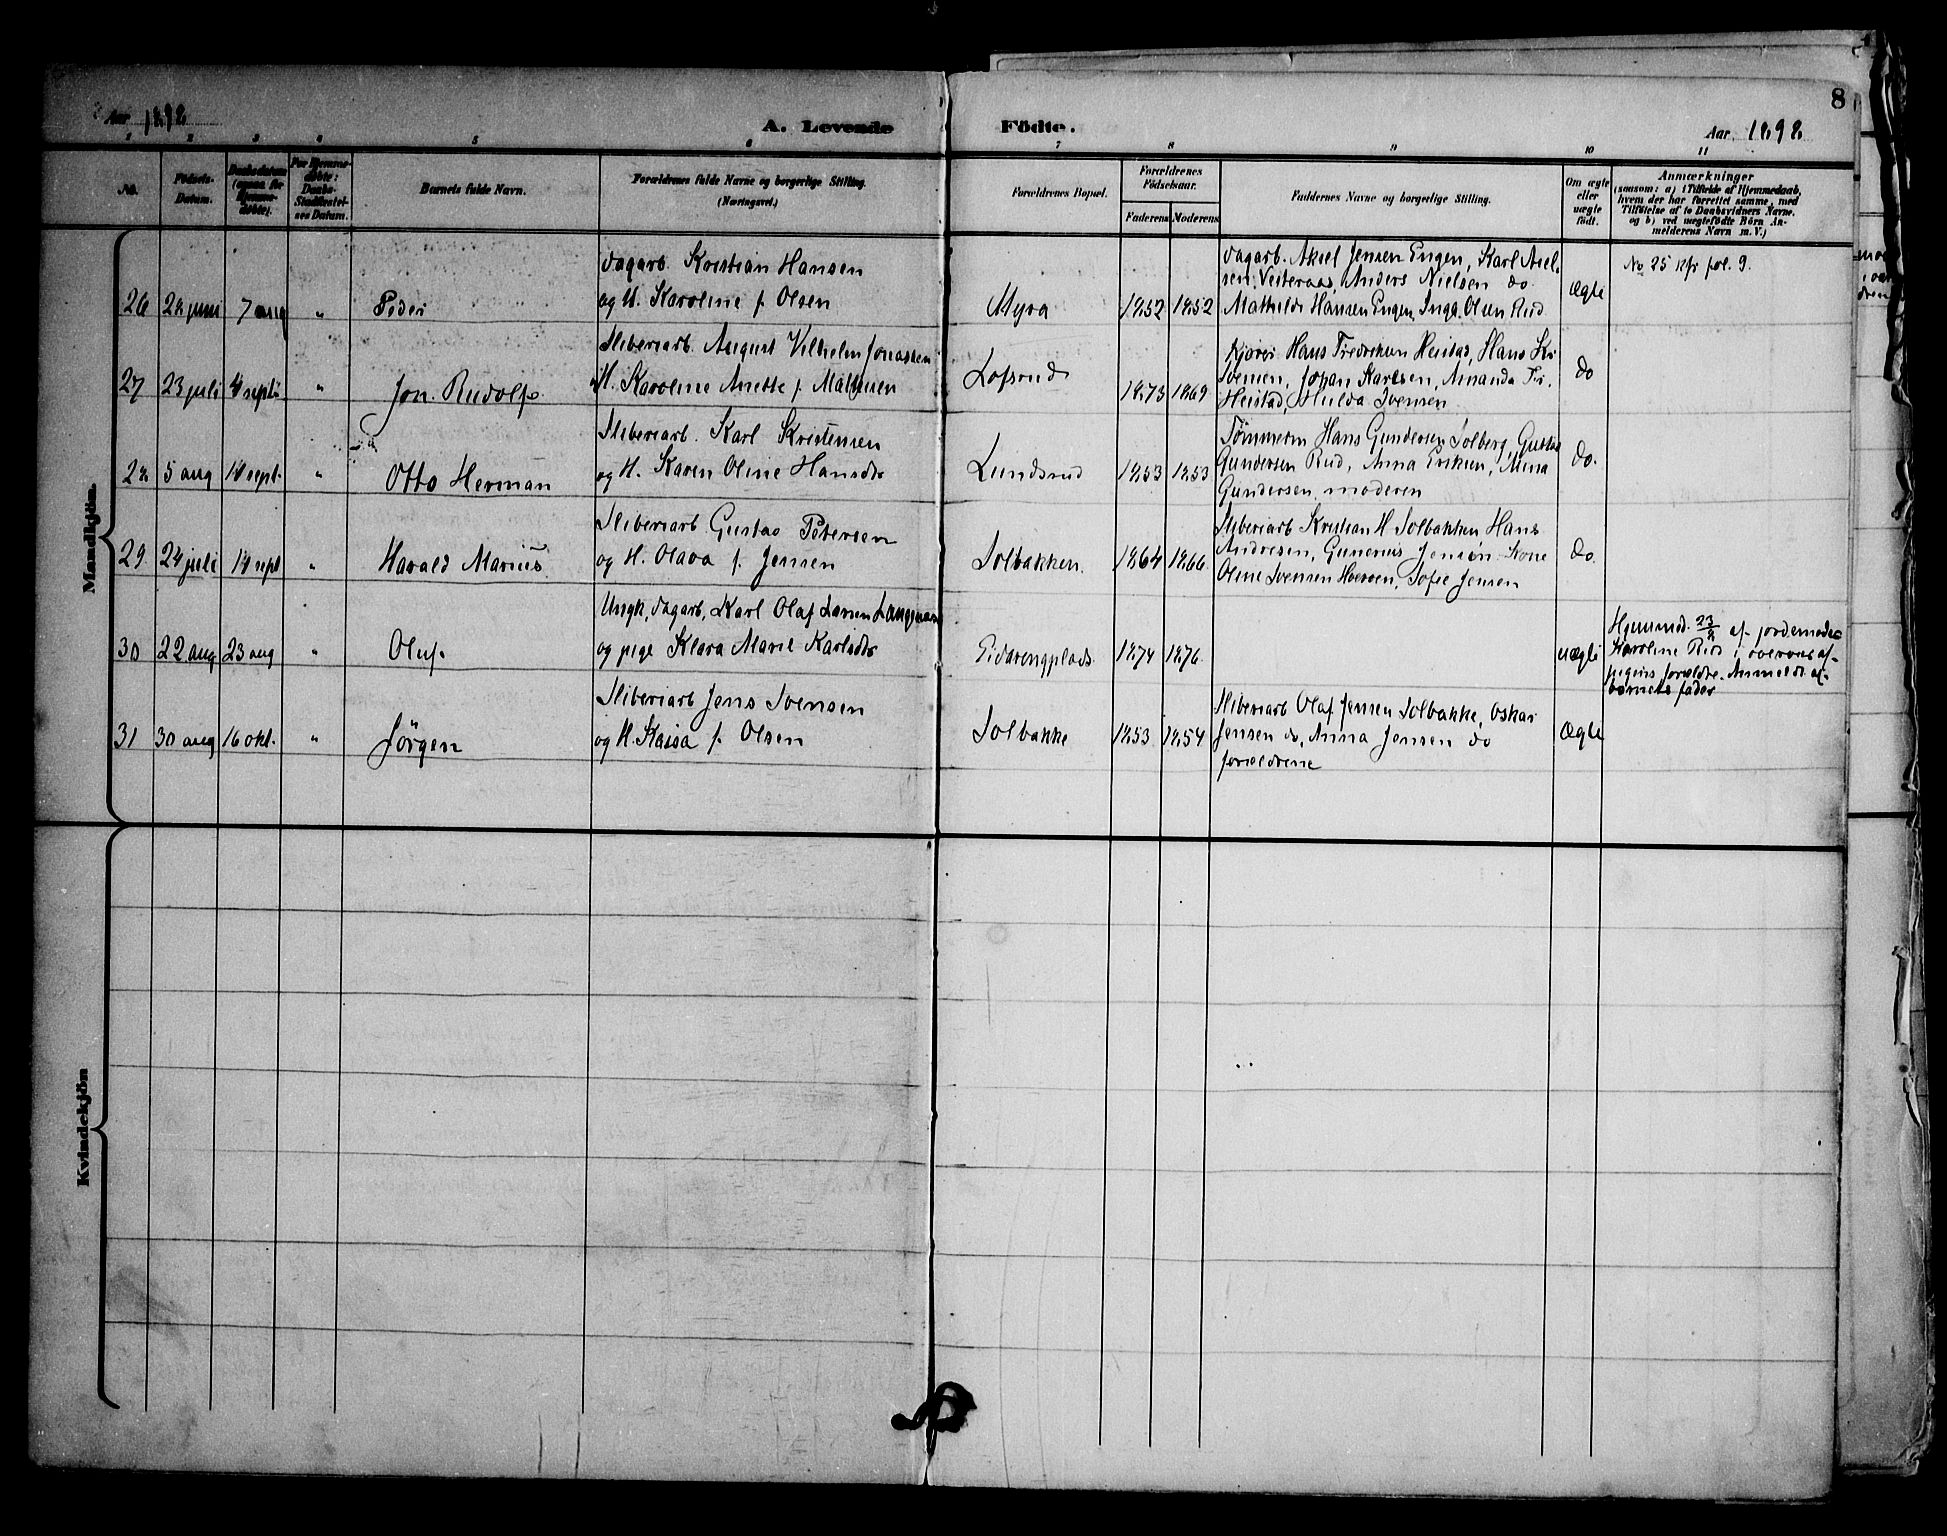 8
Aar 1898
A. Levende Födte.
Aar 1898
1 2 3 4 5 6 7 8 9 10 11
No.
Födsels-
Datum.
Daabsdatum
(ogsaa for
Hjemme-
döbte).
For Hjemme-
döbte:
Daabs-
Stadfæstel-
ses Datum.
Barnets fulde Navn.
Forældrenes fulde Navne og borgerlige Stilling.
(Næringsvei.)
Forældrenes Bopæl.
Forældrenes
Födselsaar.
Faderens Moderens
Faddernes Navne og borgerlige Stilling.
Om ægte
eller
uægte
födt.
Anmærkninger
(saasom: a) i Tilfælde af Hjemmedaab,
hvem der har forrettet samme, med
Tilföielse af to Daabsvidners Navne,
og b) ved uægtefödte Börn An-
melderens Navn m. V.)
Mandkjön.
26 28 juni 7 aug " Peder
dagarb. Kristian Hansen
og H. Karoline f. Olsen
Myra 1852 1852
dagarb. Aksel Jensen Engen, Karl Niel-
sen Vesteraas, Anders Nielsen do
Mathilde Hansen Engen, Inga Olsen Rud
Ægte
No 25 Kfr fol. 9.
27 23 juli 4 sept. " Jon Rudolf
Sliberiarb. August Vilhelm Jonassen
H. Karoline Anette f. Mathisen
Lofsrud 1873 1869
Kjører Hans Fredriksen Heistad, Hans Kr.
Svensen, Johan Karlsen, Amanda Fr.
Heistad, Hulda Svensen
do
28 5 aug 18 sept. " Otto Herman
Sliberiarb. Karl Kristensen
og H. Karen Oline Hansdtr
Lundsrud 1853 1853
Tømmerm Hans Gundersen Solberg, Gustav
Gundersen Rud, Anna Eriksen, Mina
Gundersen, moderen
do.
29 24 juli 18 sept " Harald Marius
Sliberiarb Gustav Petersen
og H. Olava f. Jensen
Solbakken. 1864 1866
Sliberiarb Kristian H Solbakken Hans
Andresen, Gunerius Jensen Kone
Oline Svensen Hoeven, Sofie Jensen
do.
30 22 aug 23 aug " Oluf
Ungk, dagarb, Karl Olaf Larsen
og pige Klara Marie Karlsdtr
Eidsrengplads. 1874 1876
uægte
Hjemmed. 23/8 af jordemoder
Karoline Rud i overvær af
pigens forældre. Anmeldt af
barnets fader
31 30 aug 16 okt. " Jörgen
Sliberiarb Jens Svensen
og H. Kaisa f. Olsen
Solbakke 1853 1854
Sliberiarb Olaf Jensen Solbakke, Oskar
Jensen do, Anna Jensen do
forældrene
Ægte
Kvindekjön